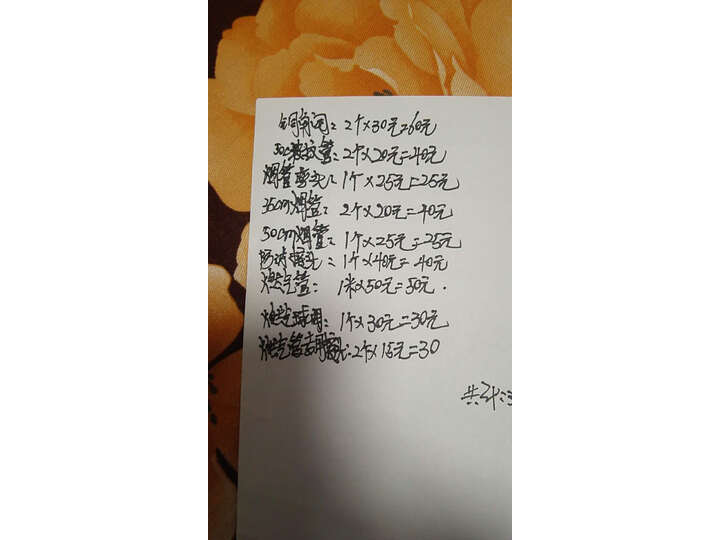 铜角阀：2个×30元=60元
50cm软管：2个×20元=40元
烟管弯头：1个×25元=25元
35cm烟管：2个×20元=40元
50cm烟管：1个×25元=25元
防冻接头：1个×40元=40元
燃气管：1米×50元=50元.
燃气球阀：1个×30元=30元
燃气管专用接头：2个×15元=30
共计：3